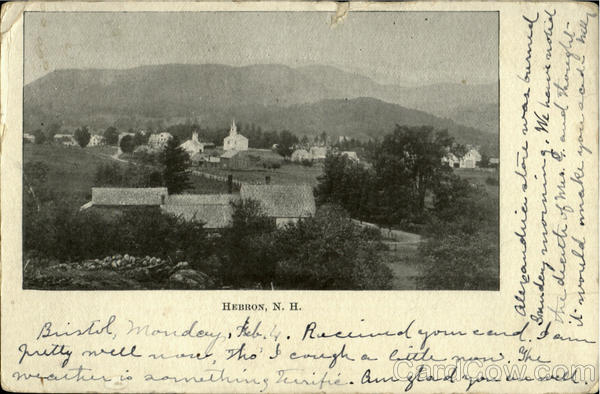 HEBRON, N. H.
Bristol, Monday, Feb. 4. Received your card. I am
pretty well now, tho' I cough a little now. The
weather is something terrific. Am glad you are well.
Alexandria store was burned
Sunday morning. We have noted
the death of Mrs. G. and thought
it would make you sad. Nelly
CardCow.com